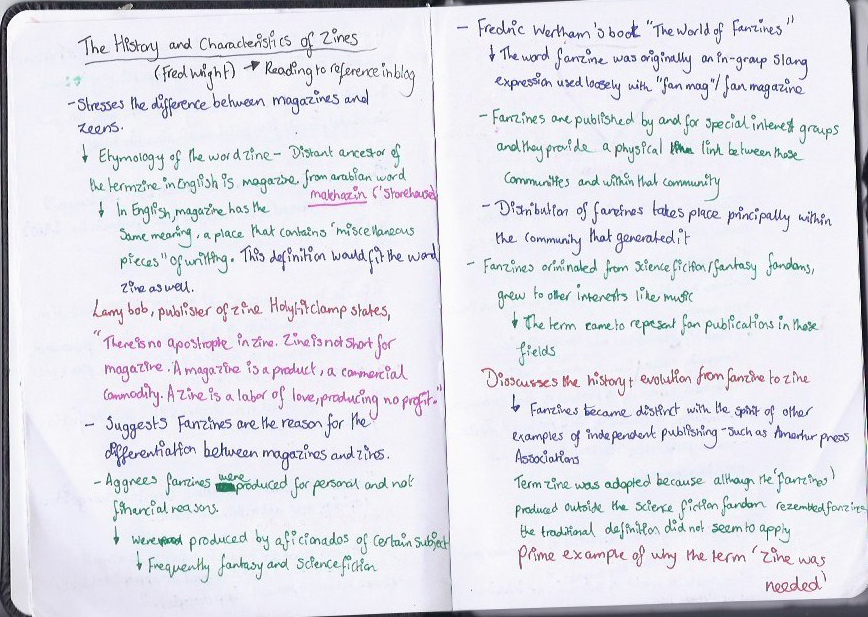 The History and Characteristics of Zines
(Fred Wright) → Reading to reference in blog
- Stresses the difference between magazines and
zeens.
↓ Etymology of the word zine - Distant ancestor of
the term zine in English is magazine from arabian word
makhazin ('Storehouse)
↓ In English, magazine has the
Same meaning, a place that contains 'miscellaneous
pieces" of writting. This definition would fit the word
zine as well.
Larry bob, publister of zine Holytitclamp states,
"There is no apostrophe in zine. Zine is not short for
magazine. A magazine is a product, a commercial
commodity. A zine is a labor of love, producing no profit."
- Suggests Fanzines are the reason for the
differentiation between magazines and zines.
- Aggrees fanzines were produced for personal and not
financial reasons.
↓ were produced by aficionados of certain subject
↓ Frequently fantasy and science fiction
- Fredric Wertham's book "The World of Fanzines"
↓ The word fanzine was originally an in-group slang
expression used loosely with "fan mag"/fan magazine
- Fanzines are published by and for special interest groups
and they provide a physical link between those
communities and within that community
- Distribution of fanzines takes place principally within
the community that generated it
- Fanzines orininated from science fiction/fantasy fandoms,
grew to other interests like music
↓ The term came to repesent fan publications in these
fields
Disscusses the history + evolution from fanzine to zine
↓ Fanzines became distinct with the spirit of other
examples of independent publishing - such as Amertur press
Associations
Term zine was adopted because although the 'fanzines'
produced outside the science fiction fandom rezembled fanzine
the traditional definition did not seem to apply
Prime example of why the term 'zine was
needed'